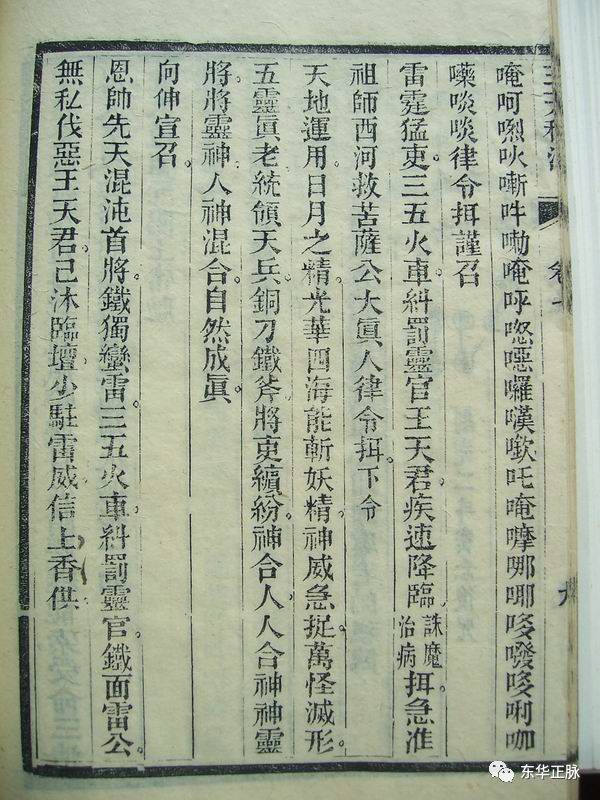 唵呵㘑吙嘶吽嘞唵呼㗲噁囉嘆㗵吒唵嚤哪𠵽哆噯哆唎咖
嚛啖啖律令揖謹召
雷霆猛吏三五火車糾罰靈官王天君疾速降臨誅魔治病揖急准
祖師西河救苦薩公大眞人律令揖下令
天地運用日月之精。光華四海能斬妖精。神威急捉萬怪滅形。
五靈眞老統領天兵。銅刀鐵斧將吏繽紛。神合人人合神神靈
將將靈神人神混合自然成眞。
向伸宣召
恩帥先天混沌首將。鐵獨蠻雷三五火車糾罰靈官鐵面雷公。
無私伐惡王天君。已沐臨壇。少駐雷威。信上香供
卷七
九
东华正脉